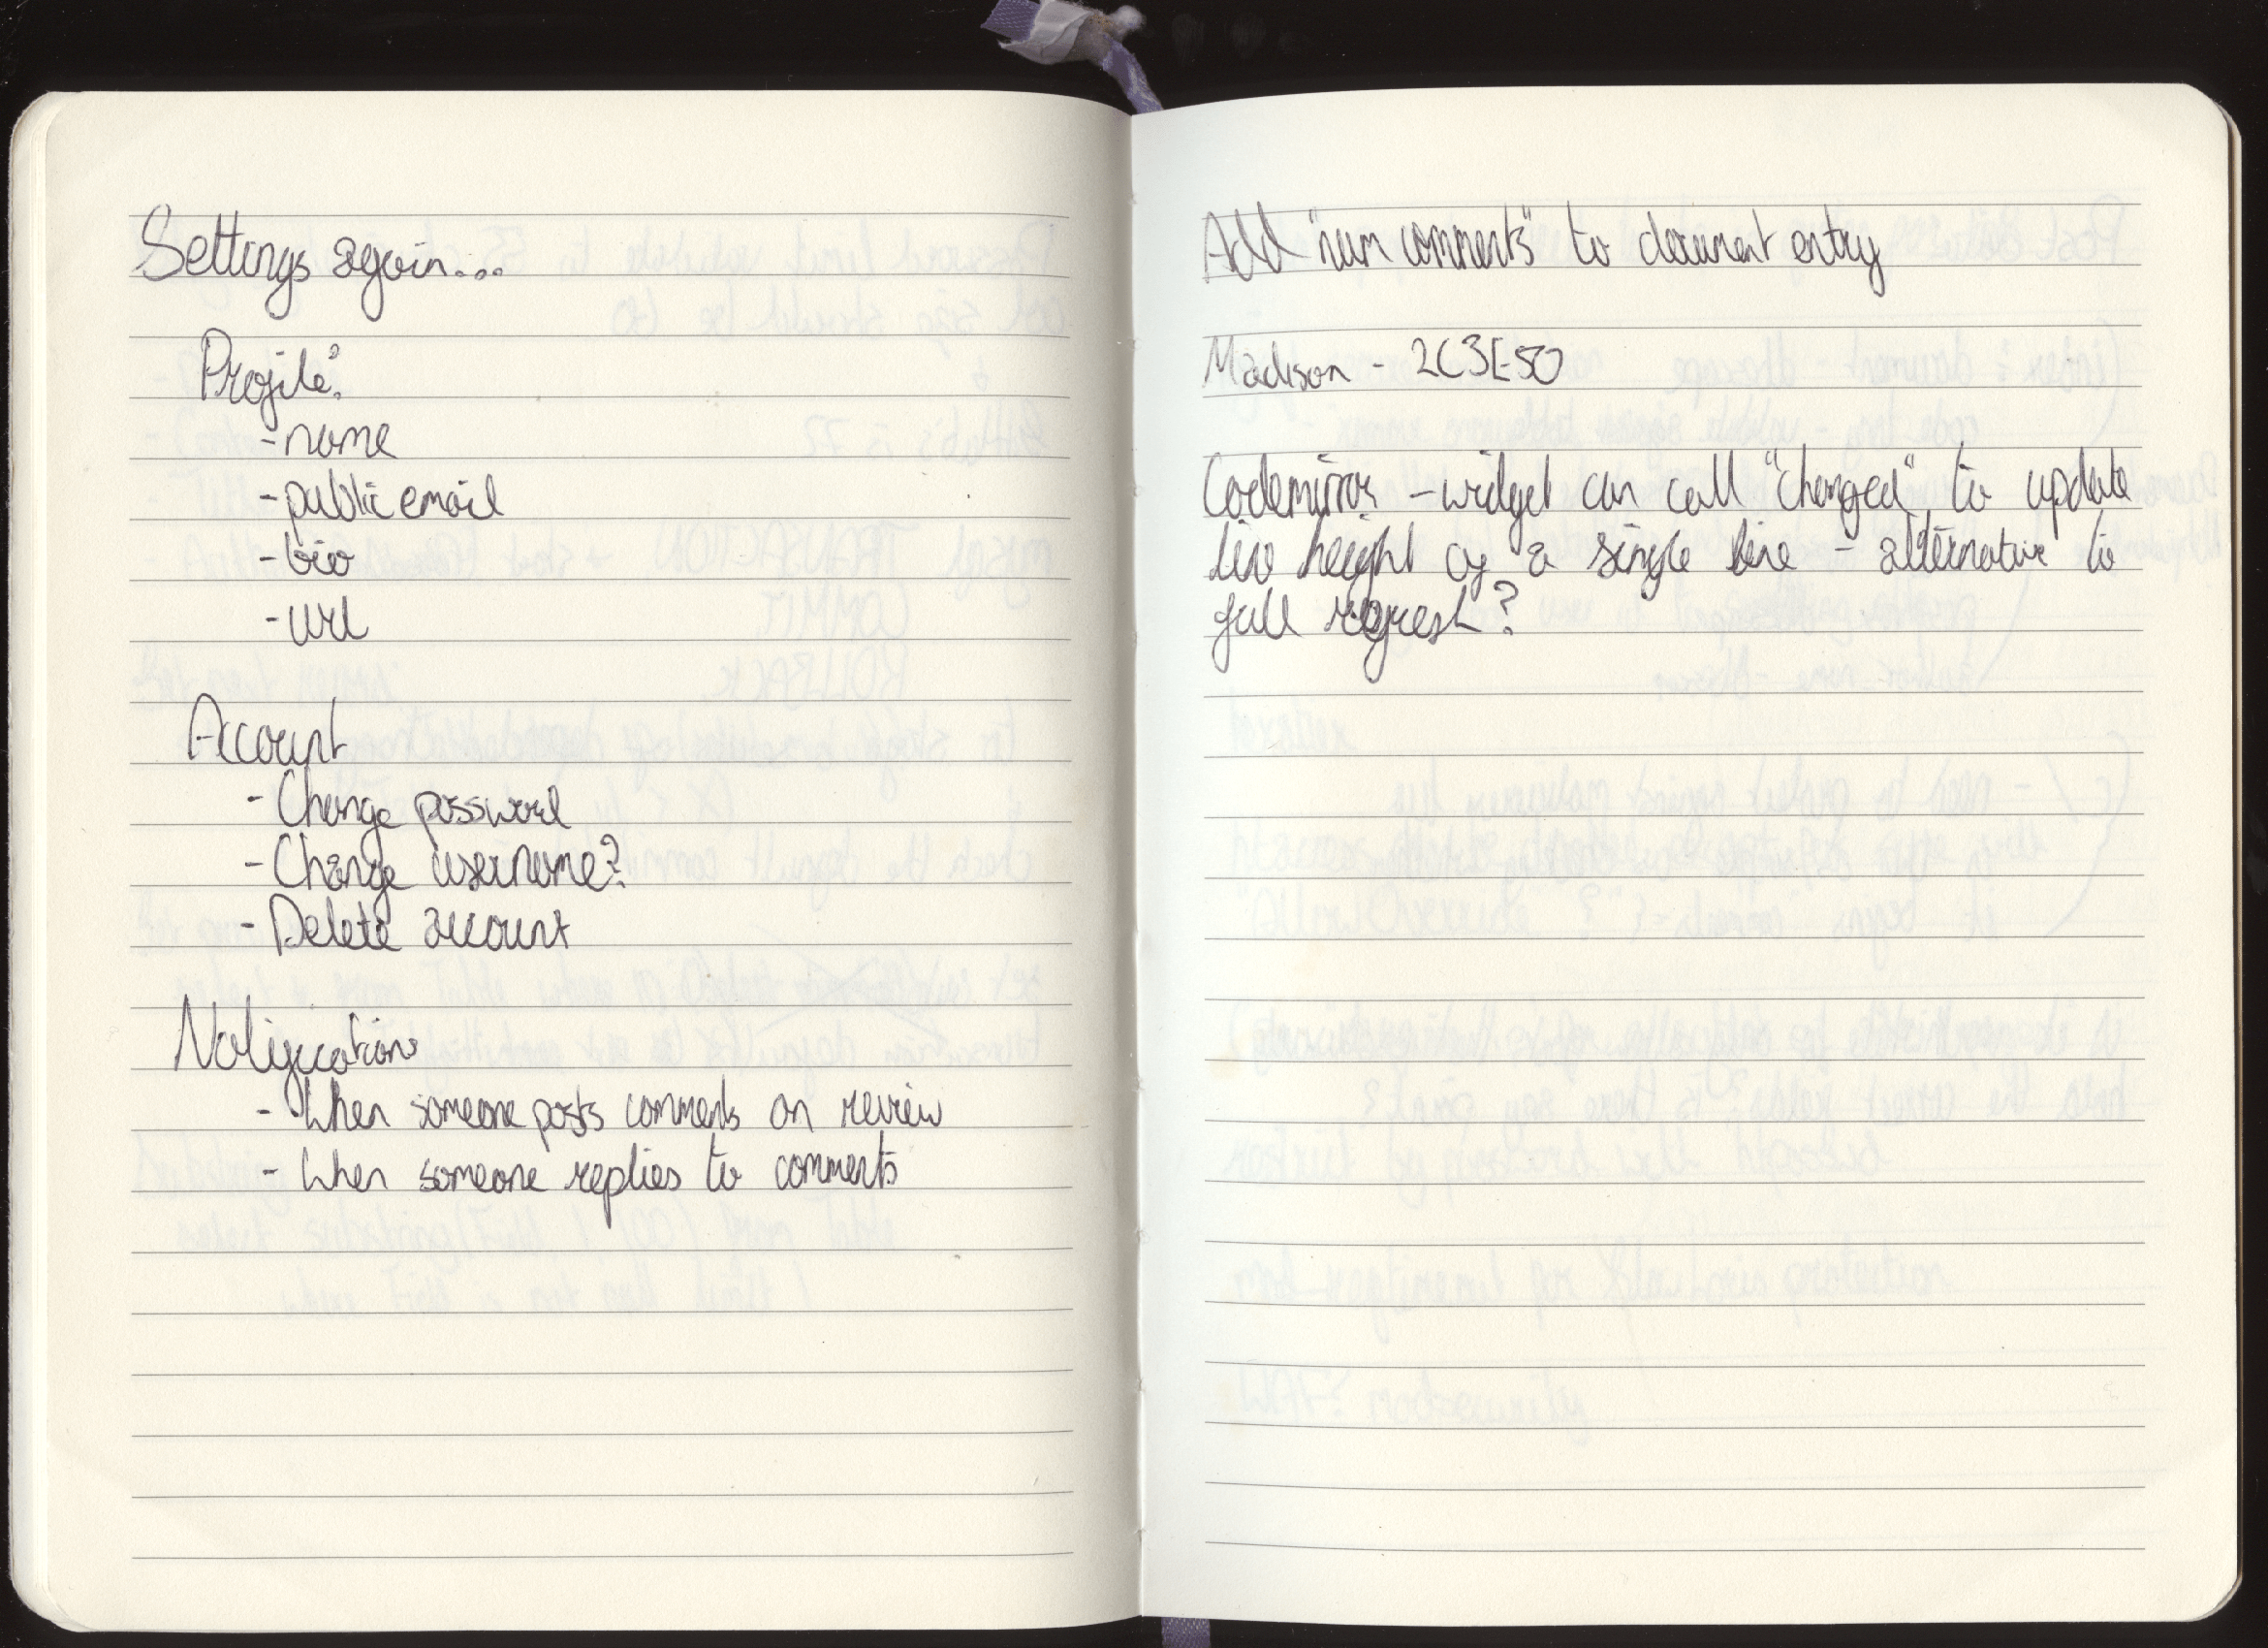 Settings again...
Profile?
- name
- public email
- bio
- url
Account
- Change password
- Change username?
- Delete account
Notifications
- When someone posts comments on review
- When someone replies to comments
Add "num comments" to document entry
Madison - 2C3E50
Codemirror - widget can call "changed" to update
height of a single line - alternative to
full refresh?